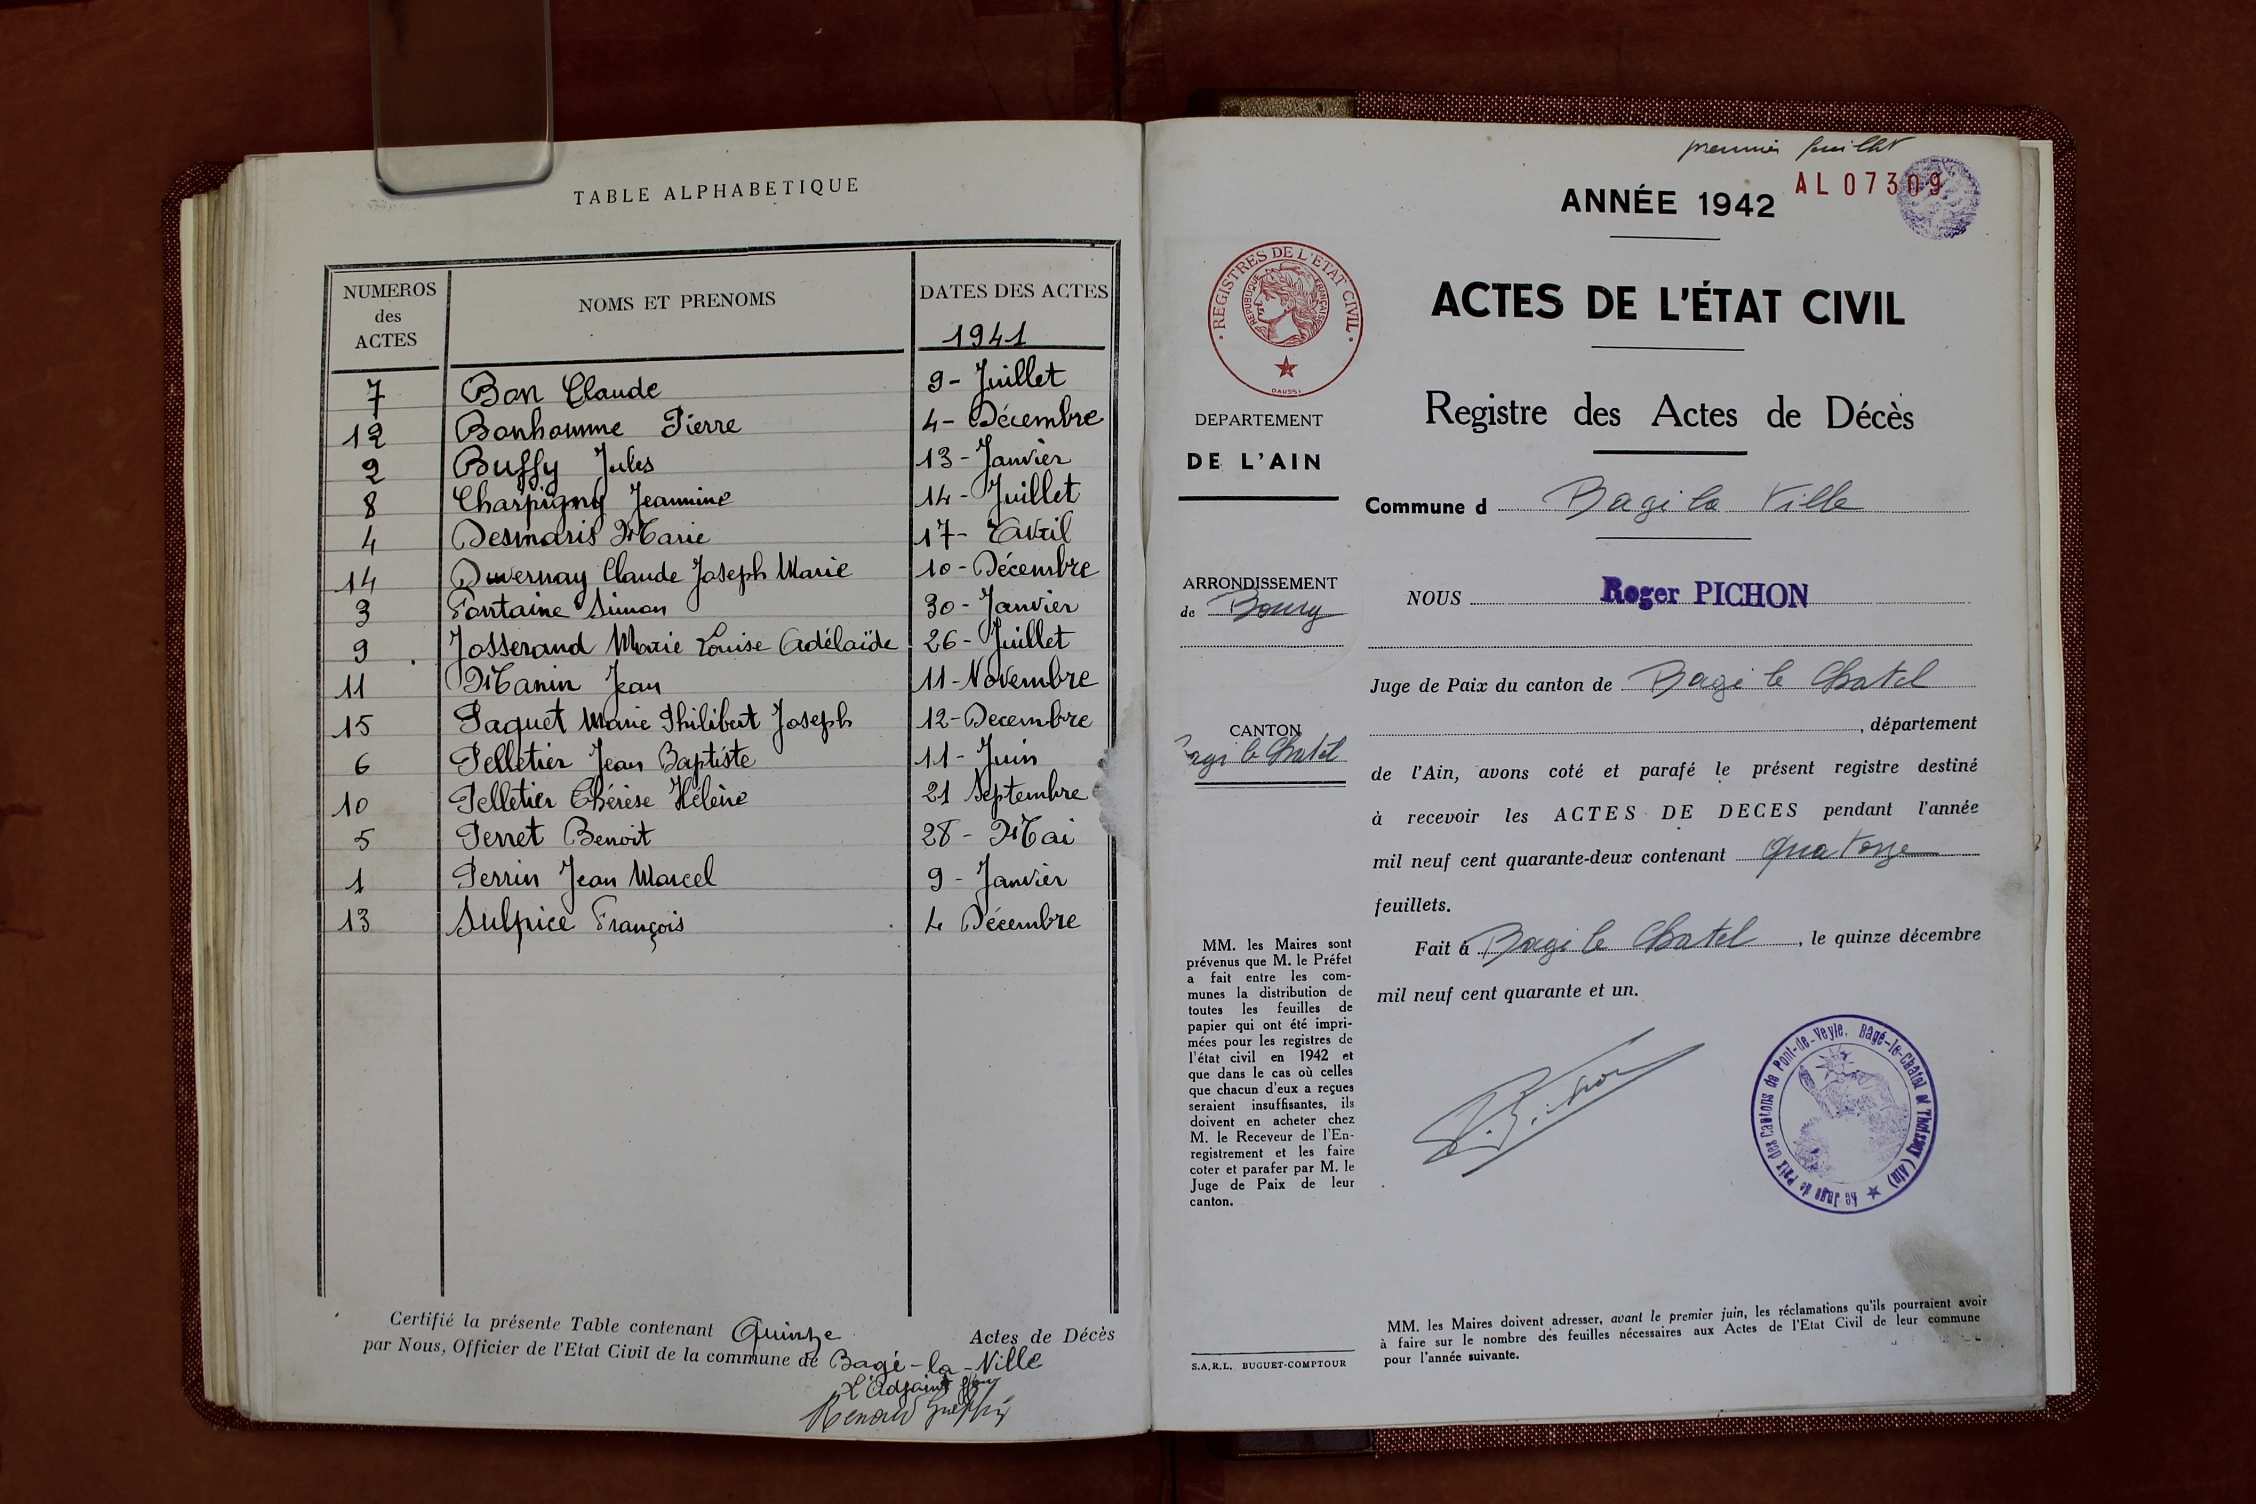 TABLE ALPHABETIQUE
NUMEROS des ACTES NOMS ET PRENOMS DATES DES ACTES
1941
7 Bon Claude 9 - Juillet
12 Bonhomme Pierre 4 - Décembre
2 Buffy Jules 13 - Janvier
8 Charpigny Jeannine 14 - Juillet
4 Desmaris Marie 17 - Avril
14 Duvernay Claude Joseph Marie 10 - Décembre
3 Fontaine Simon 30 - Janvier
9 Josserand Marie Louise Adélaïde 26 - Juillet
11 Manin Jean 11 - Novembre
15 Paquet Marie Philibert Joseph 12 - Decembre
6 Pelletier Jean Baptiste 11 - Juin
10 Pelletier Thérèse Hélène 21 Septembre
5 Perret Benoit 28 - Mai
1 Perrin Jean Marcel 9 - Janvier
13 Sulpice François 4 Décembre
Certifié la présente Table contenant Quinze Actes de Décès
par Nous, Officier de l'Etat Civil de la commune de Bagé-la-Ville
L'Adjoint
Renaud
premier feuillet
AL 07309
ANNÉE 1942
REGISTRES DE L'ETAT CIVIL
REPUBLIQUE FRANÇAISE
ACTES DE L'ÉTAT CIVIL
Registre des Actes de Décès
DEPARTEMENT
DE L'AIN
Commune d Bagé la Ville
ARRONDISSEMENT
de Bourg
NOUS Roger PICHON
Juge de Paix du canton de Bagé le Chatel
, département
CANTON
Bagé le Chatel
de l'Ain, avons coté et parafé le présent registre destiné
à recevoir les ACTES DE DECES pendant l'année
mil neuf cent quarante-deux contenant quatorze
feuillets.
Fait à Bagé le Chatel, le quinze décembre
mil neuf cent quarante et un.
MM. les Maires sont
prévenus que M. le Préfet
a fait entre les com-
munes la distribution de
toutes les feuilles de
papier qui ont été impri-
mées pour les registres de
l'état civil en 1942 et
que dans le cas où celles
que chacun d'eux a reçues
seraient insuffisantes, ils
doivent en acheter chez
M. le Receveur de l'En-
registrement et les faire
coter et parafer par M. le
Juge de Paix de leur
canton.
R. Pichon
Le Juge de Paix des Cantons de Pont-de-Veyle, Bagé-le-Chatel et Thoissey (Ain)
MM. les Maires doivent adresser, avant le premier juin, les réclamations qu'ils pourraient avoir
à faire sur le nombre des feuilles nécessaires aux Actes de l'Etat Civil de leur commune
pour l'année suivante.
S.A.R.L. BUGUET-COMPTOUR